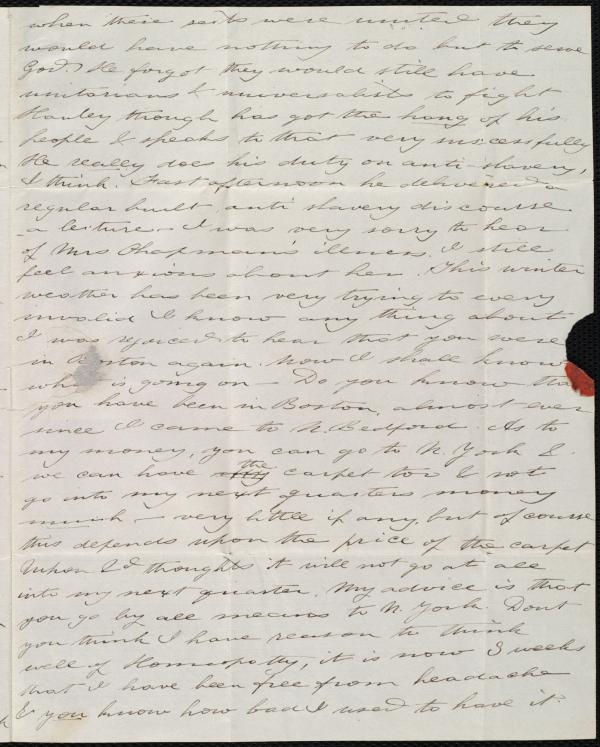 when these sects were united they
would have nothing to do but to serve
God. He forgot they would still have
unitarians & universalists to fight
Hanley though has got the hang of his
people & speaks to that very successfully
He really does his duty on anti-slavery,
I think. Fast afternoon he delivered a
regular built anti slavery discourse
- a lecture - I was very sorry to hear
of Mrs Chapman's illness. I still
feel anxious about her. This winter
weather has been very trying to every
invalid I know any thing about
I was rejoiced to hear that you were
in Boston again. Now I shall know
what is going on - Do you know that
you have been in Boston, almost ever
since I came to N. Bedford. As to
my money, you can go to N. York &
we can have the carpet too & not
go into my next quarters money
much - very little if any, but of course
this depends upon the price of the carpet
Upon 2d thoughts it will not go at all
into my next quarter. My advice is that
you go by all means to N. York. Dont
you think I have reason to think
well of Homeopathy, it is now 3 weeks
that I have been free from headache
& you know how bad I used to have it.